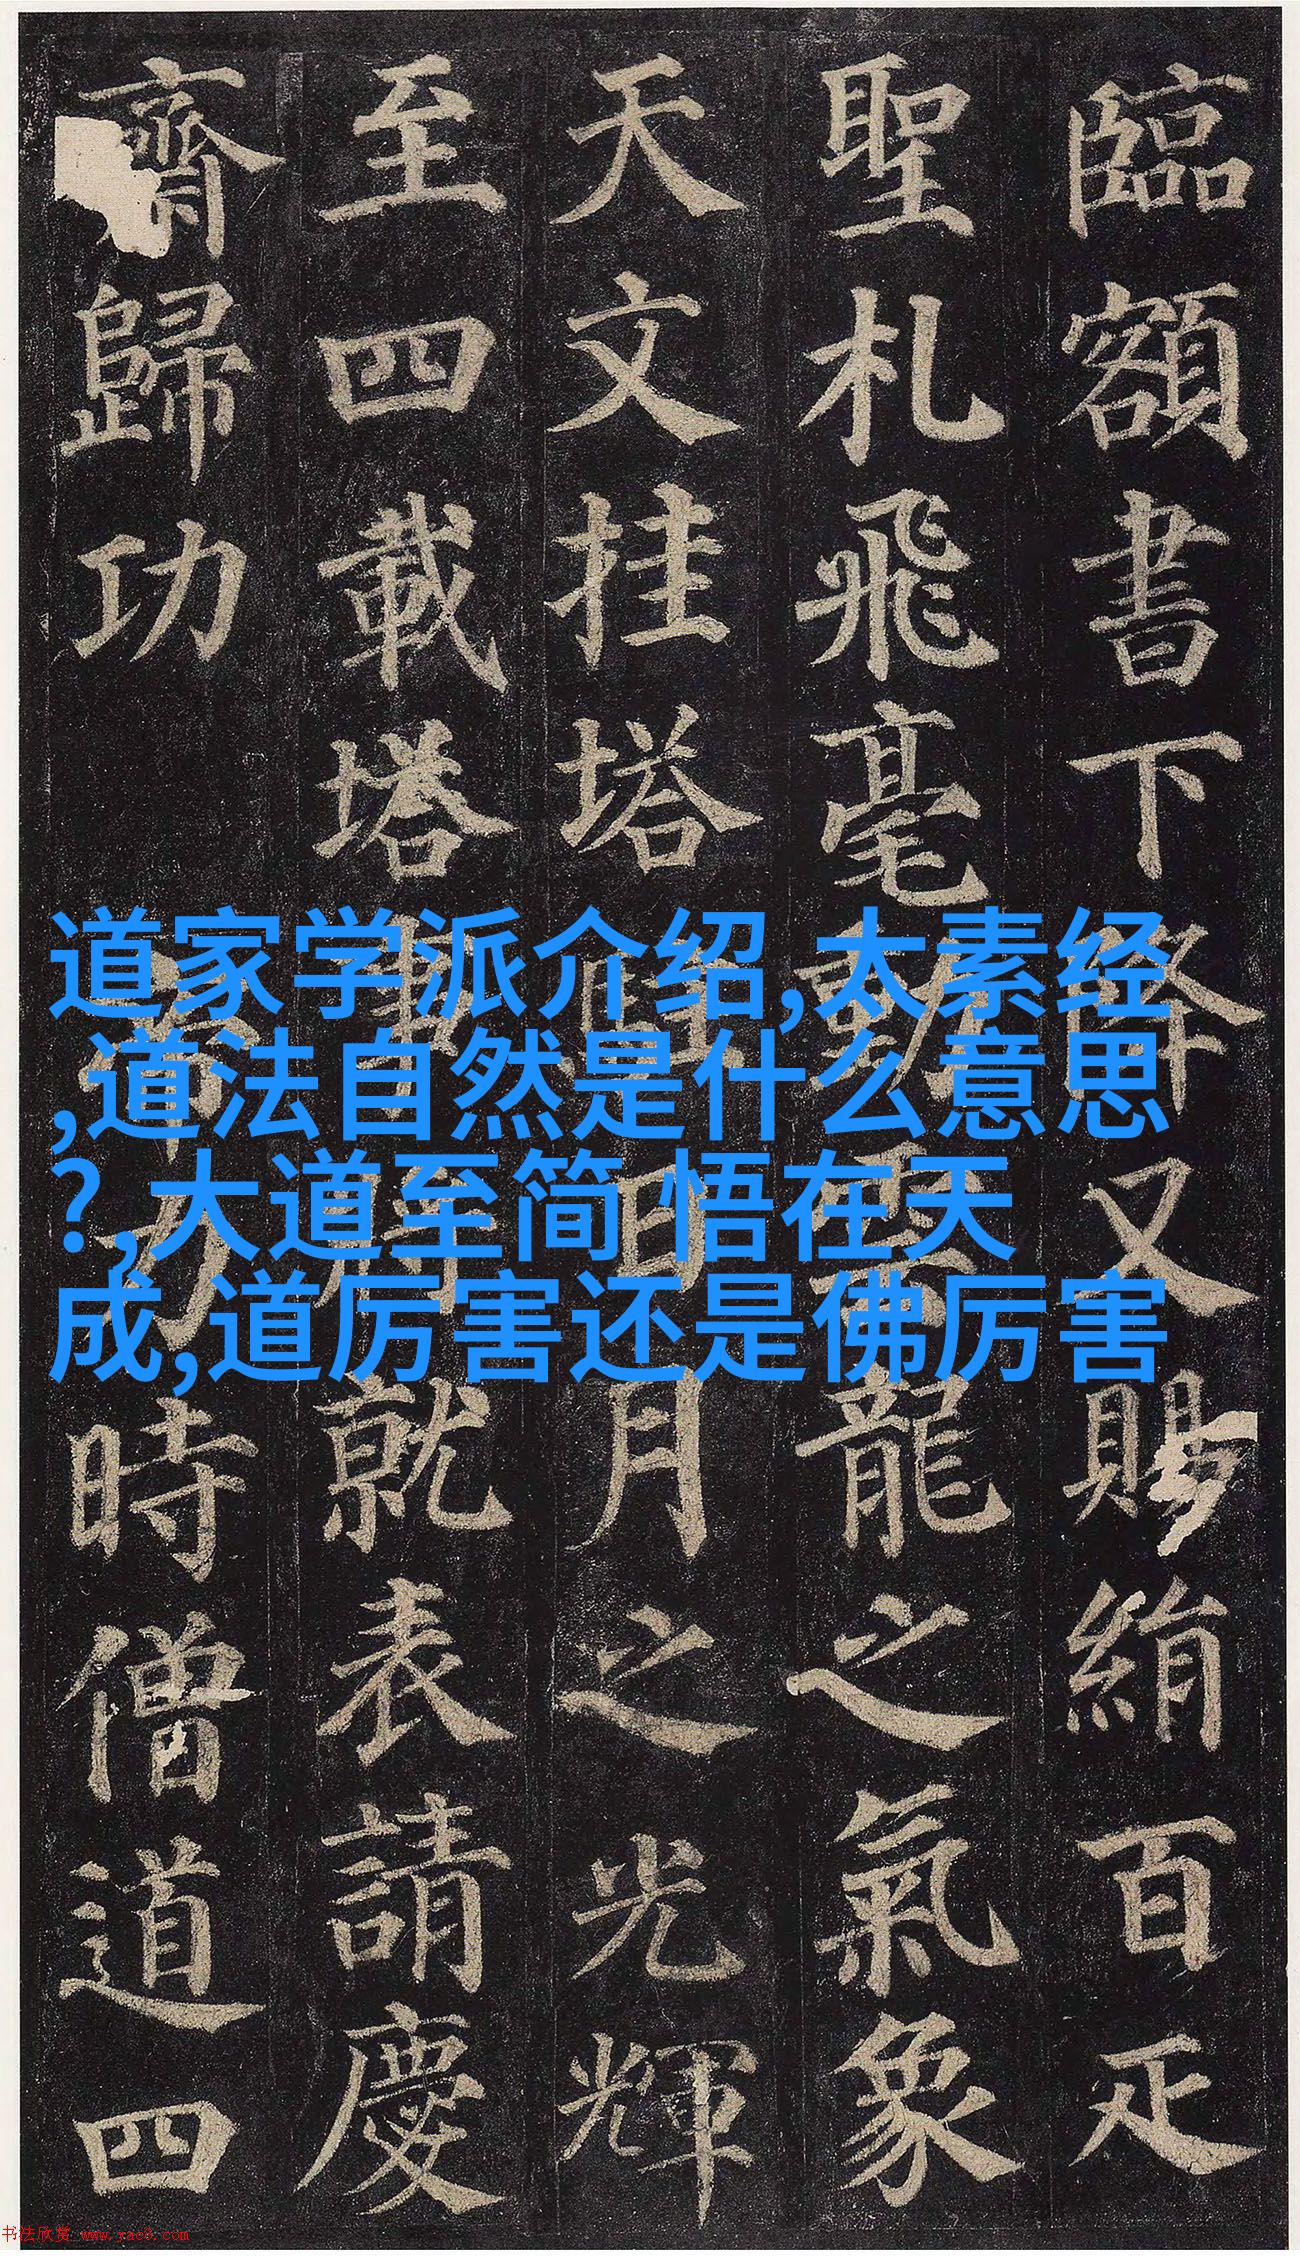 臨額書下降又賜絹百疋
聖札飛毫動雲龍之氣象
天文挂塔駐日月之光輝
至四載塔事將就表請慶
齋歸功帝力時僧道四
道家学派介绍,太素经
,道法自然是什么意思
?,大道至简 悟在天
成,道厉害还是佛厉害
书法欣赏 www.yac8.com